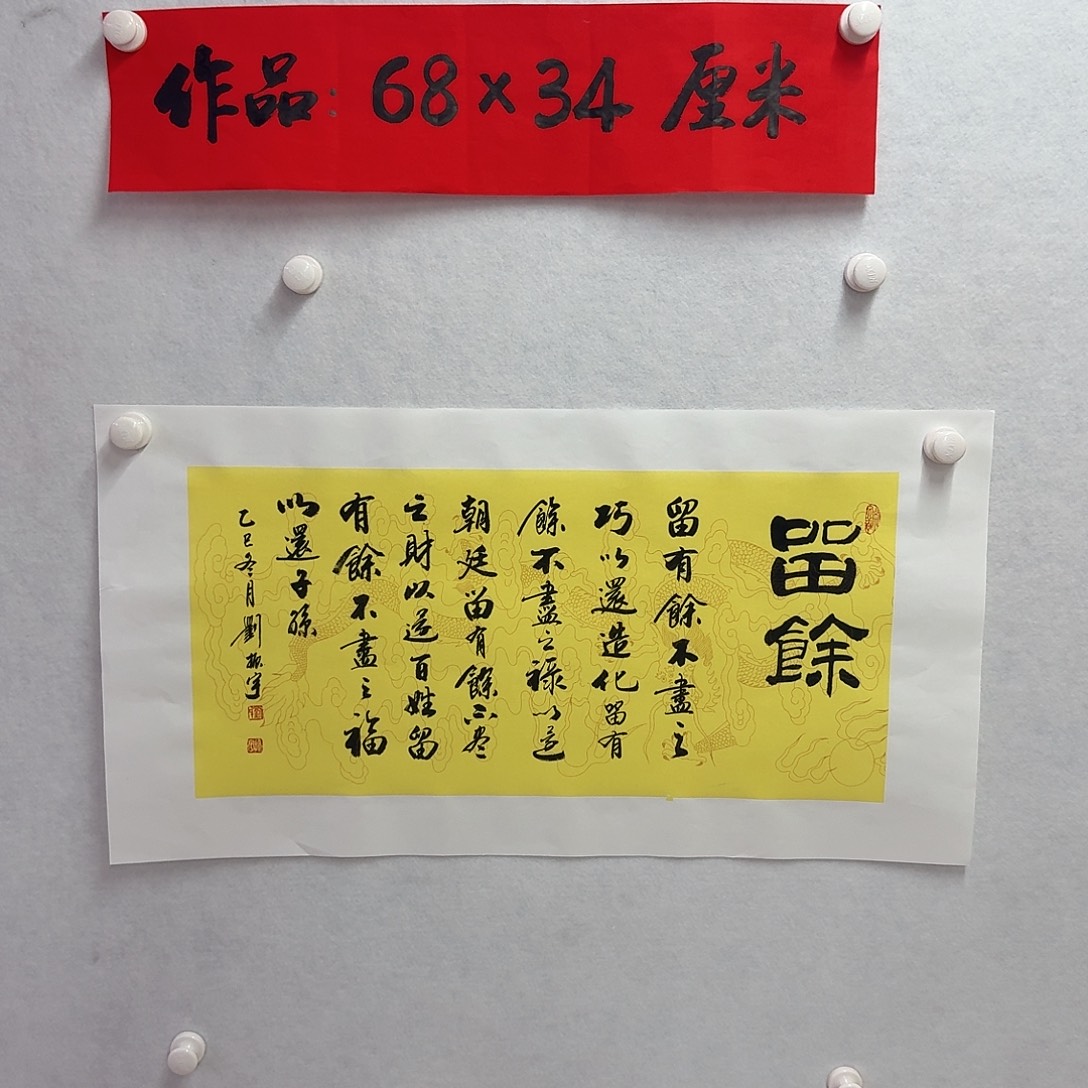 作品：68×34厘米
留餘
留有餘不盡之
巧以還造化留有
餘不盡之祿以還
朝廷留有餘不盡
之財以還百姓留
有餘不盡之福
以還子孫
乙巳冬月劉振宇